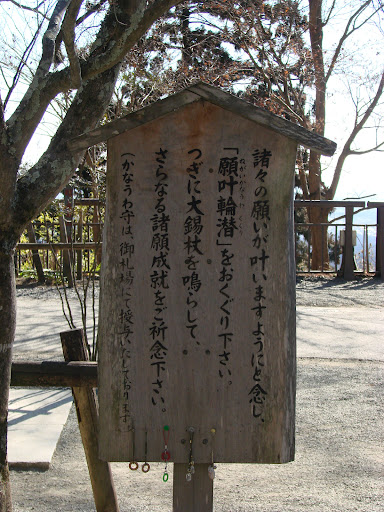 諸々の願いが叶いますようにと念じ、
ねがいかなうわくぐり
「願叶輪潜」をおくぐり下さい。
つぎに大錫杖を鳴らして、
さらなる諸願成就をご祈念下さい。
(かなうわ守は、御札場にて授与いたしております。)